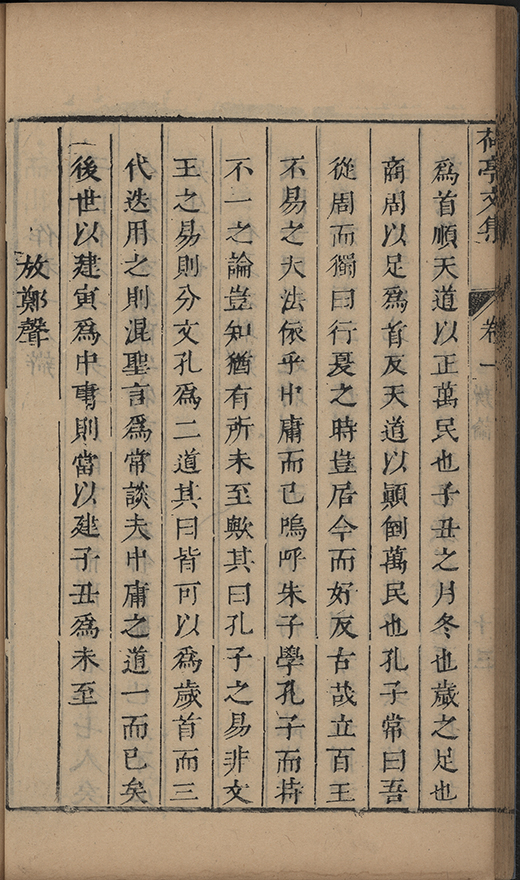 荷亭文集 卷一
爲首順天道以正萬民也子丑之月冬也歲之足也
商周以足爲首反天道以顚倒萬民也孔子常曰吾
從周而獨曰行夏之時豈居今而好反古哉立百王
不易之大法依乎中庸而已嗚呼朱子學孔子而持
不一之論豈知猶有所未至歟其曰孔子之易非文
王之易則分文孔爲二道其曰皆可以爲歲首而三
代迭用之則混聖言爲常談夫中庸之道一而已矣
後世以建寅爲中事則當以建子丑爲未至
放鄭聲